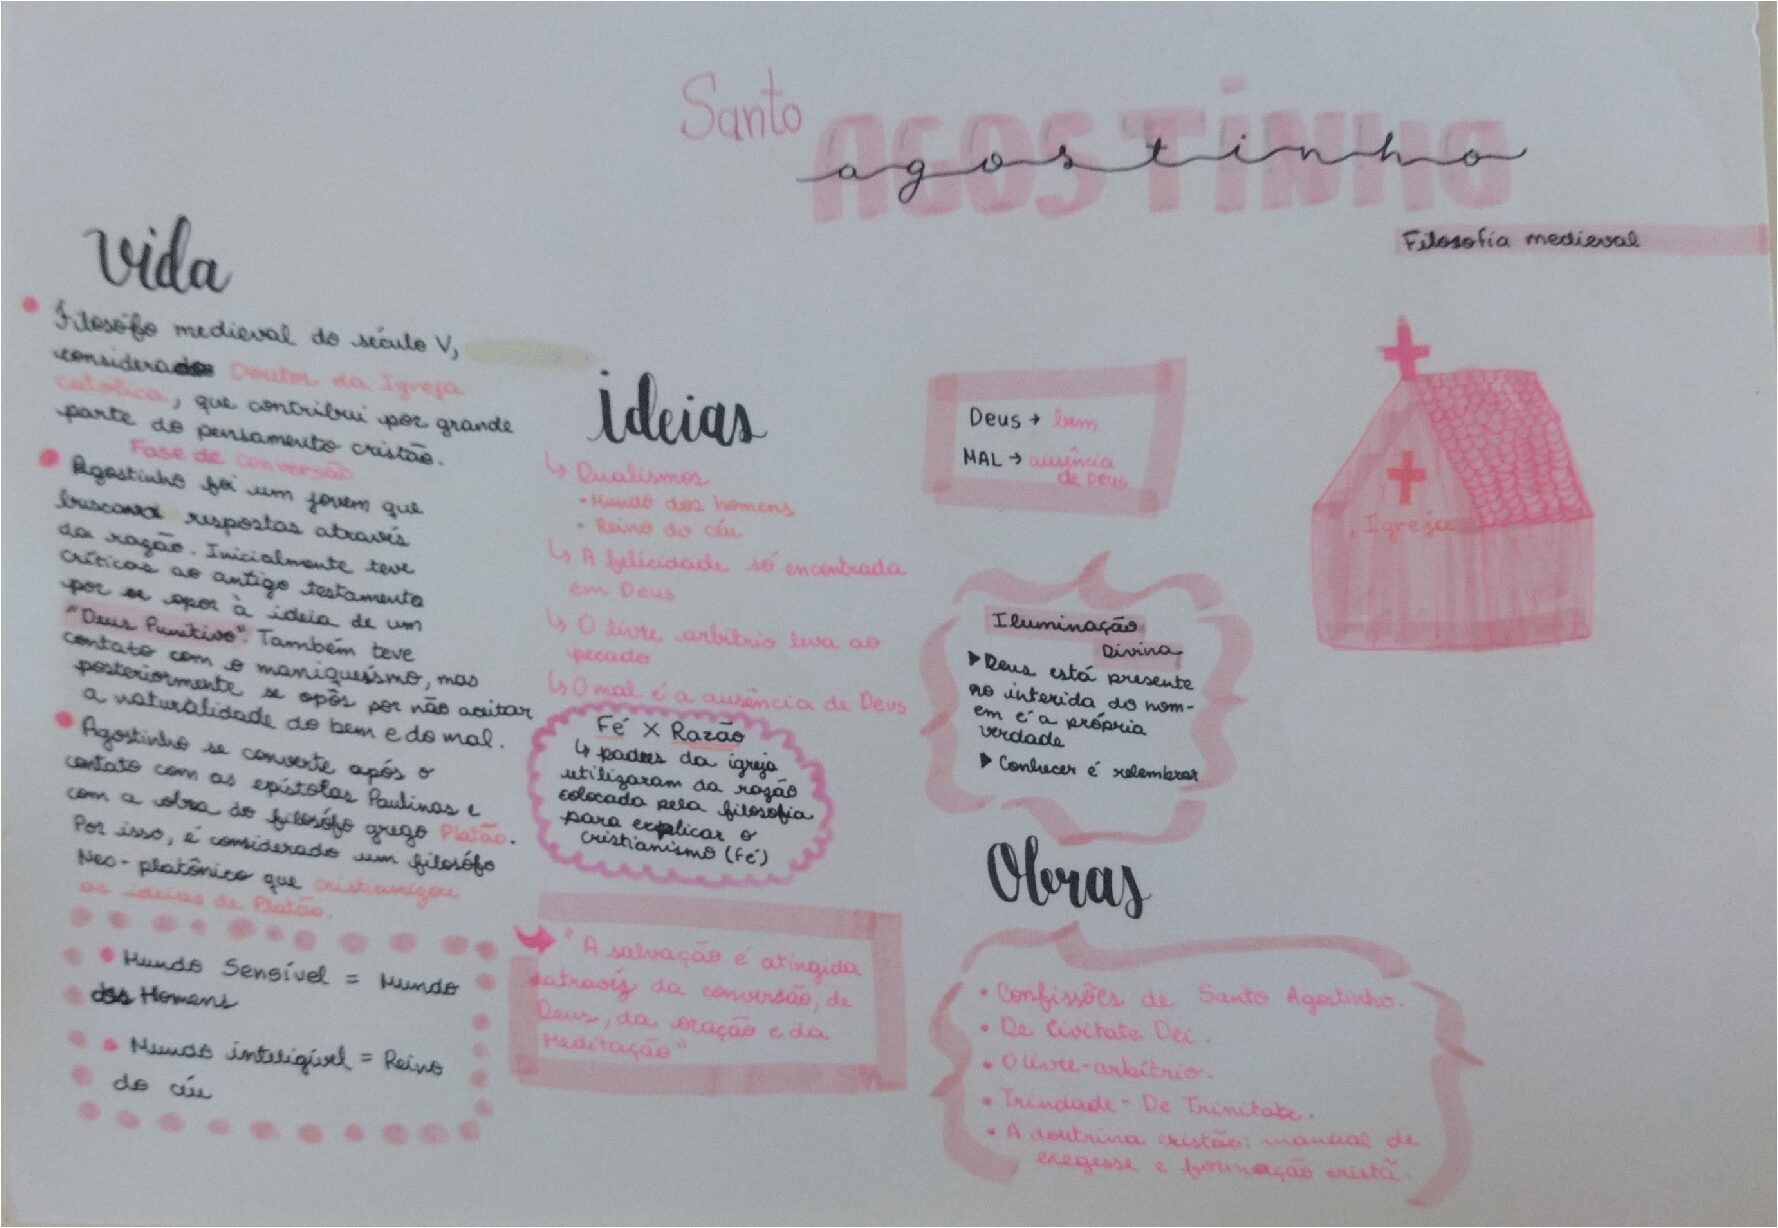 Santo
AGOSTINHO
agostinho
Filosofia medieval
Vida
Filosófo medieval do século V,
considerado Doutor da Igreja
católica, que contribui por grande
parte do pensamento cristão.
Fase de conversão
Agostinho foi um jovem que
buscava respostas através
da razão. Inicialmente teve
críticas ao antigo testamento
por se opor à ideia de um
"Deus Punitivo". Também teve
contato com o maniqueísmo, mas
posteriormente se opôs por não aceitar
a naturalidade do bem e do mal.
Agostinho se converte após o
contato com as epístolas Paulinas e
com a obra do filosófo grego Platão.
Por isso, é considerado um filosófo
Neo-platônico que cristianizou
as ideias de Platão.
Mundo Sensível = Mundo
dos Homens
Mundo inteligível = Reino
do céu
ideias
↳ Dualismos
• Mundo dos homens
• Reino do céu
↳ A felicidade só encontrada
em Deus
↳ O livre arbítrio leva ao
pecado
↳ O mal é a ausência de Deus
Fé X Razão
↳ padres da igreja
utilizaram da razão
colocada pela filosofia
para explicar o
cristianismo (Fé)
"A salvação é atingida
através da conversão, de
Deus, da oração e da
Meditação"
Deus → bem
MAL → ausência
de Deus
Igreja
Iluminação
Divina
▶ Deus está presente
no interida do hom-
em é a própria
verdade
▶ Conhecer é relembrar
Obras
• Confissões de Santo Agostinho.
• De Civitate Dei.
• O livre-arbítrio.
• Trindade - De Trinitate.
• A doutrina cristão: manual de
exegesse e formação cristã.